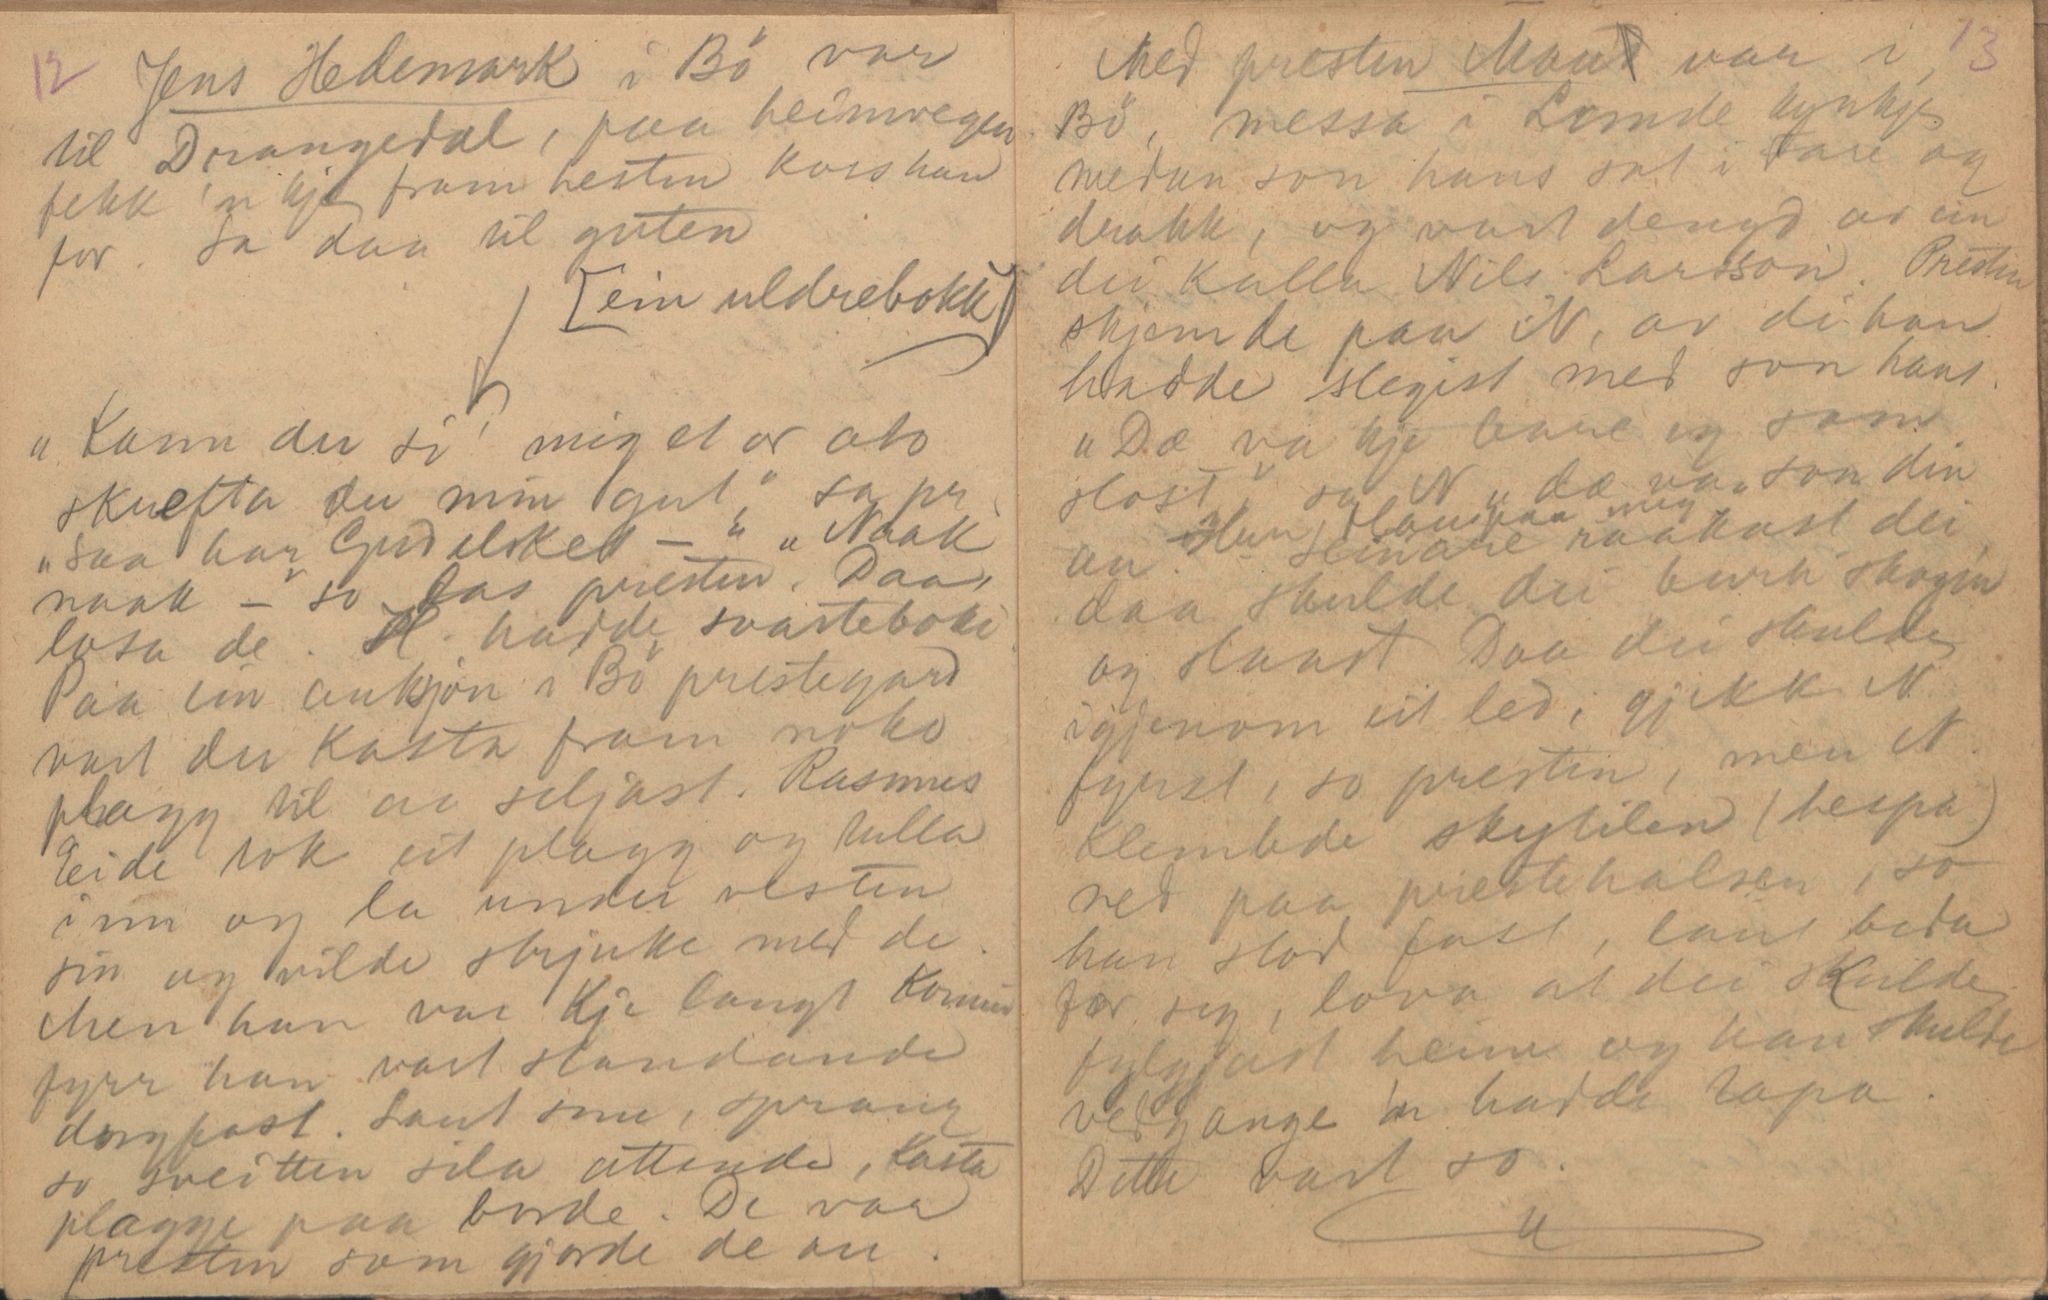 12
Jens Hedemark i Bö var
til Drangedal, paa heimvegen
fekk 'n kje fram hesten kors han
for. Sa daa til guten
[ein uldrebokk]
"Kann du si' mig et or ato
skuefta du min gut," sa pr.
"saa har Gud elsket – " "Naak
naak – " so las presten. Daa
losa de. H. hadde svarteboki
Paa ein auksjon i Bö prestegard
vart der kasta fram noko
plagg til aa seljast. Rasmus
Eide tok eit plagg og tulla
inn og la under vesten
sin og vilde strjuke med de.
Men han var kje langt komin
fyrr han vart standande
dørgfast. Laut snu, sprang
so sveitten sila attende, kasta
plagge paa borde. De var
presten som gjorde de au.
13
Med presten Maud var i
Bö, messa i Lunde kyrkje
medan son hans sat i Fare og
drakk, og vart dengd av ein
dei kalla Nils Larsson. Presten
skjemde paa N, av di han
hadde slegist med son hans.
"Dæ va kje bare eg som
slost," sa N "dæ va son din
au. Han slou paa mig"
– Seinare raakast dei,
daa skulde dei burt i skogin
og slaast Daa dei skulde
igjenom eit led, gjekk N
fyrst, so presten, men N.
klemde skytilen (hespa)
ned paa prestehalsen, so
han stod fast, laut beda
for seg, lova at dei skulde
fylgjast heim og han skulde
vedgange 'n hadde tapa.
Dette vart so.